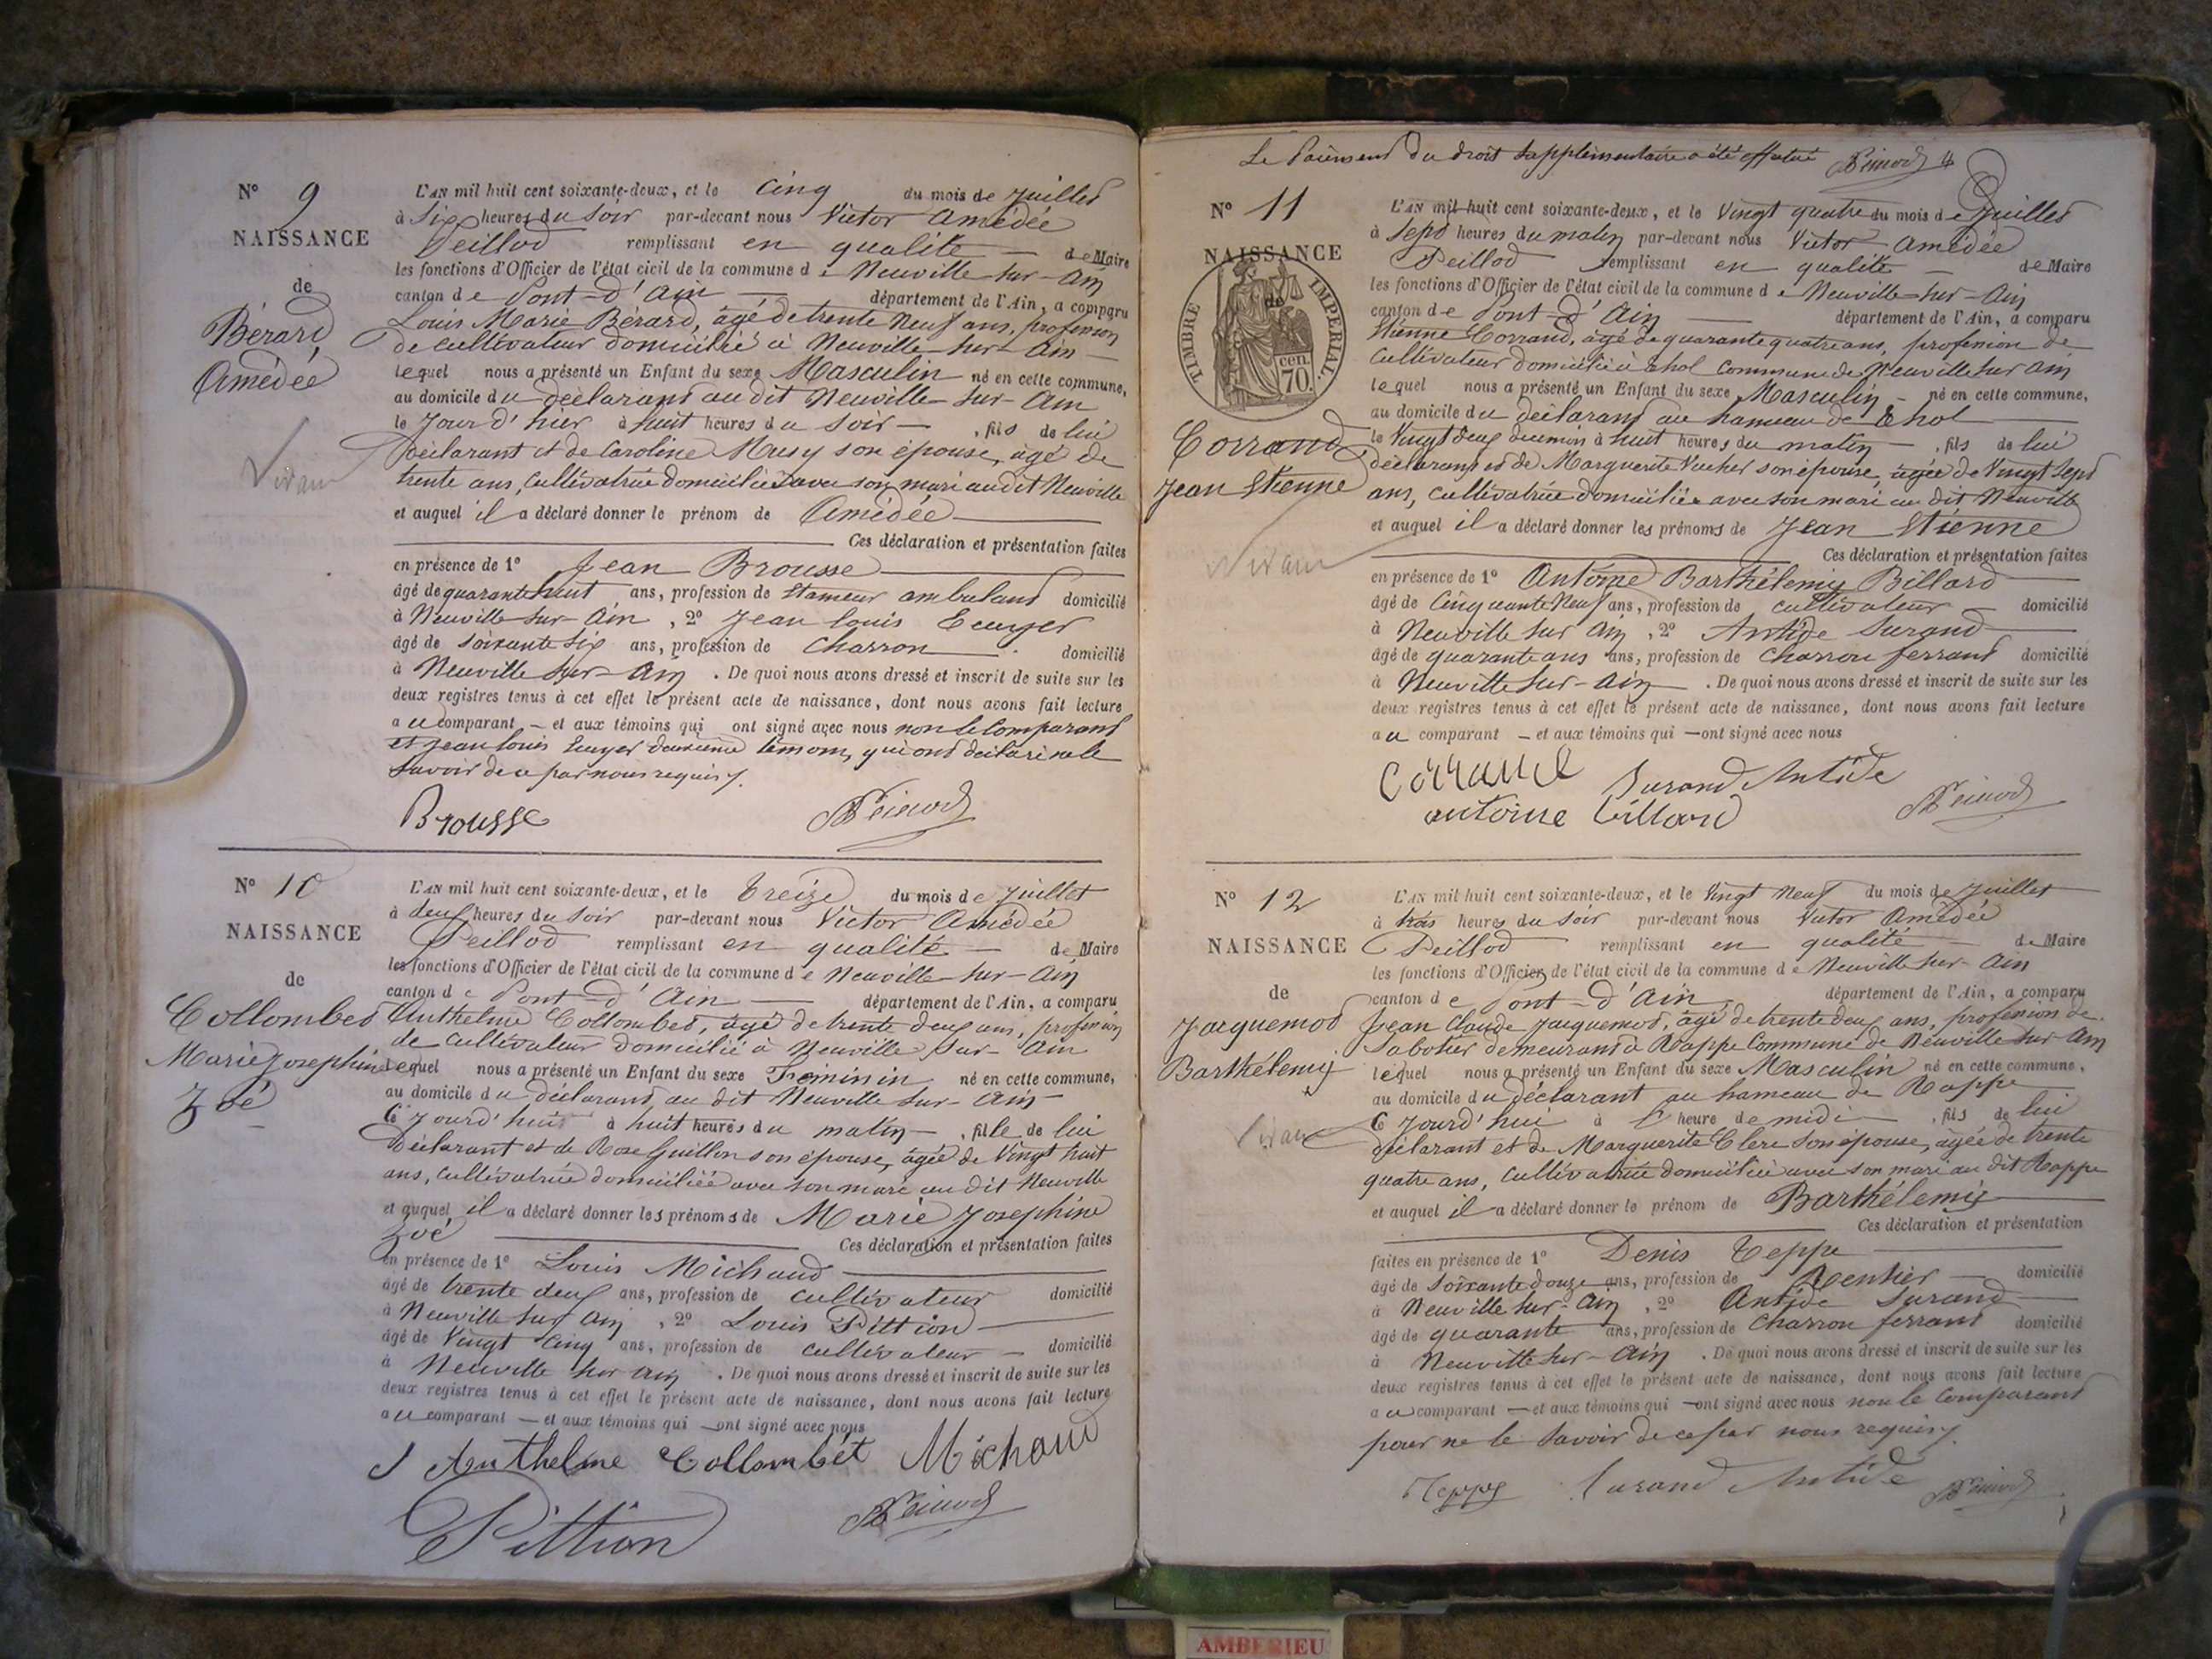 N° 9
NAISSANCE
de
Bérard
Amédée
Vivant
L'AN mil huit cent soixante-deux, et le Cinq du mois de Juillet
à Six heures du Soir par-devant nous Victor Amédée
Peillod remplissant en qualité de Maire
les fonctions d'Officier de l'état civil de la commune de Neuville-sur-Ain
canton de Pont-d'Ain département de l'Ain, a comparu
Louis Marie Bérard, âgé de trente neuf ans, profession
de cultivateur domicilié à Neuville-sur-Ain
lequel nous a présenté un Enfant du sexe Masculin né en cette commune,
au domicile du déclarant au dit Neuville-sur-Ain
le Jour d'hier à huit heures du Soir, fils de lui
Déclarant et de Caroline Musy son épouse, âgé de
trente ans, cultivatrice domiciliée avec son mari au dit Neuville
et auquel il a déclaré donner le prénom de Amédée
Ces déclaration et présentation faites
en présence de 1° Jean Brousse
âgé de quarante huit ans, profession de Etameur ambulant domicilié
à Neuville-sur-Ain, 2° Jean Louis Ecuyer
âgé de soixante six ans, profession de Charron domicilié
à Neuville-sur-Ain. De quoi nous avons dressé et inscrit de suite sur les
deux registres tenus à cet effet le présent acte de naissance, dont nous avons fait lecture
au comparant et aux témoins qui ont signé avec nous non le Comparant
et Jean Louis Ecuyer deuxième témoin, qui ont déclaré ne le
Savoir de ce par nous requis.
Brousse
N° 10
NAISSANCE
de
Collombet
Marie Josephine
Zoé
L'AN mil huit cent soixante-deux, et le Treize du mois de Juillet
à deux heures du Soir par-devant nous Victor Amédée
Peillod remplissant en qualité de Maire
les fonctions d'Officier de l'état civil de la commune de Neuville-sur-Ain
canton de Pont-d'Ain département de l'Ain, a comparu
Anthelme Collombet, âgé de trente deux ans, profession
de Cultivateur domicilié à Neuville sur-Ain
lequel nous a présenté un Enfant du sexe Féminin né en cette commune,
au domicile du déclarant au dit Neuville-sur-Ain
Ce Jourd'hui à huit heures du matin, fille de lui
Déclarant et de Rose Guillon son épouse, âgée de Vingt huit
ans, cultivatrice domiciliée avec son mari au dit Neuville
et auquel il a déclaré donner les prénoms de Marie Josephine
Zoé Ces déclaration et présentation faites
en présence de 1° Louis Michaud
âgé de trente deux ans, profession de cultivateur domicilié
à Neuville sur Ain, 2° Louis Pittion
âgé de Vingt Cinq ans, profession de cultivateur domicilié
à Neuville sur Ain. De quoi nous avons dressé et inscrit de suite sur les
deux registres tenus à cet effet le présent acte de naissance, dont nous avons fait lecture
au comparant et aux témoins qui ont signé avec nous
Anthelme Collombet Michaud
Pittion
Le Paiement du droit Supplémentaire a été effectué
N° 11
NAISSANCE
de
TIMBRE IMPERIAL.
70. cen.
Corrand
Jean Etienne
Vivant
L'AN mil huit cent soixante-deux, et le Vingt quatre du mois de Juillet
à Sept heures du matin par-devant nous Victor Amédée
Peillod remplissant en qualité de Maire
les fonctions d'Officier de l'état civil de la commune de Neuville-sur-Ain
canton de Pont-d'Ain département de l'Ain, a comparu
Etienne Corrand, âgé de quarante quatre ans, profession de
Cultivateur domicilié à Thol Commune de Neuville sur Ain
lequel nous a présenté un Enfant du sexe Masculin né en cette commune,
au domicile du déclarant au hameau de Thol
le Vingt deux du mois à huit heures du matin, fils de lui
déclarant et de Marguerite Vucher son épouse, âgée de Vingt Sept
ans, cultivatrice domiciliée avec son mari au dit Neuville
et auquel il a déclaré donner les prénoms de Jean Etienne
Ces déclaration et présentation faites
en présence de 1° Antoine Barthélemy Billard
âgé de Cinquante Neuf ans, profession de cultivateur domicilié
à Neuville sur Ain, 2° Antide Durand
âgé de quarante ans ans, profession de Charron ferrant domicilié
à Neuville sur-Ain. De quoi nous avons dressé et inscrit de suite sur les
deux registres tenus à cet effet le présent acte de naissance, dont nous avons fait lecture
au comparant et aux témoins qui ont signé avec nous
Corrand Durand Antide
antoine billard
N° 12
NAISSANCE
de
Jacquemod
Barthélemy
Vivant
L'AN mil huit cent soixante-deux, et le Vingt Neuf du mois de Juillet
à trois heures du Soir par-devant nous Victor Amédée
Peillod remplissant en qualité de Maire
les fonctions d'Officier de l'état civil de la commune de Neuville sur-Ain
canton de Pont-d'Ain département de l'Ain, a comparu
Jean Claude Jacquemod, âgé de trente deux ans, profession de
Sabotier demeurant à Rappe Commune de Neuville sur Ain
lequel nous a présenté un Enfant du sexe Masculin né en cette commune,
au domicile du déclarant au hameau de Rappe
Ce Jourd'hui à l'heure de midi, fils de lui
déclarant et de Marguerite Clerc son épouse, âgée de trente
quatre ans, cultivatrice domiciliée avec son mari au dit Rappe
et auquel il a déclaré donner le prénom de Barthélemy
Ces déclaration et présentation
faites en présence de 1° Denis Teppe
âgé de Soixante douze ans, profession de Rentier domicilié
à Neuville sur-Ain, 2° Antide Durand
âgé de quarante ans, profession de Charron ferrant domicilié
à Neuville sur-Ain. De quoi nous avons dressé et inscrit de suite sur les
deux registres tenus à cet effet le présent acte de naissance, dont nous avons fait lecture
au comparant et aux témoins qui ont signé avec nous non le Comparant
pour ne le Savoir de ce par nous requis.
Teppe Durand Antide
AMBERIEU